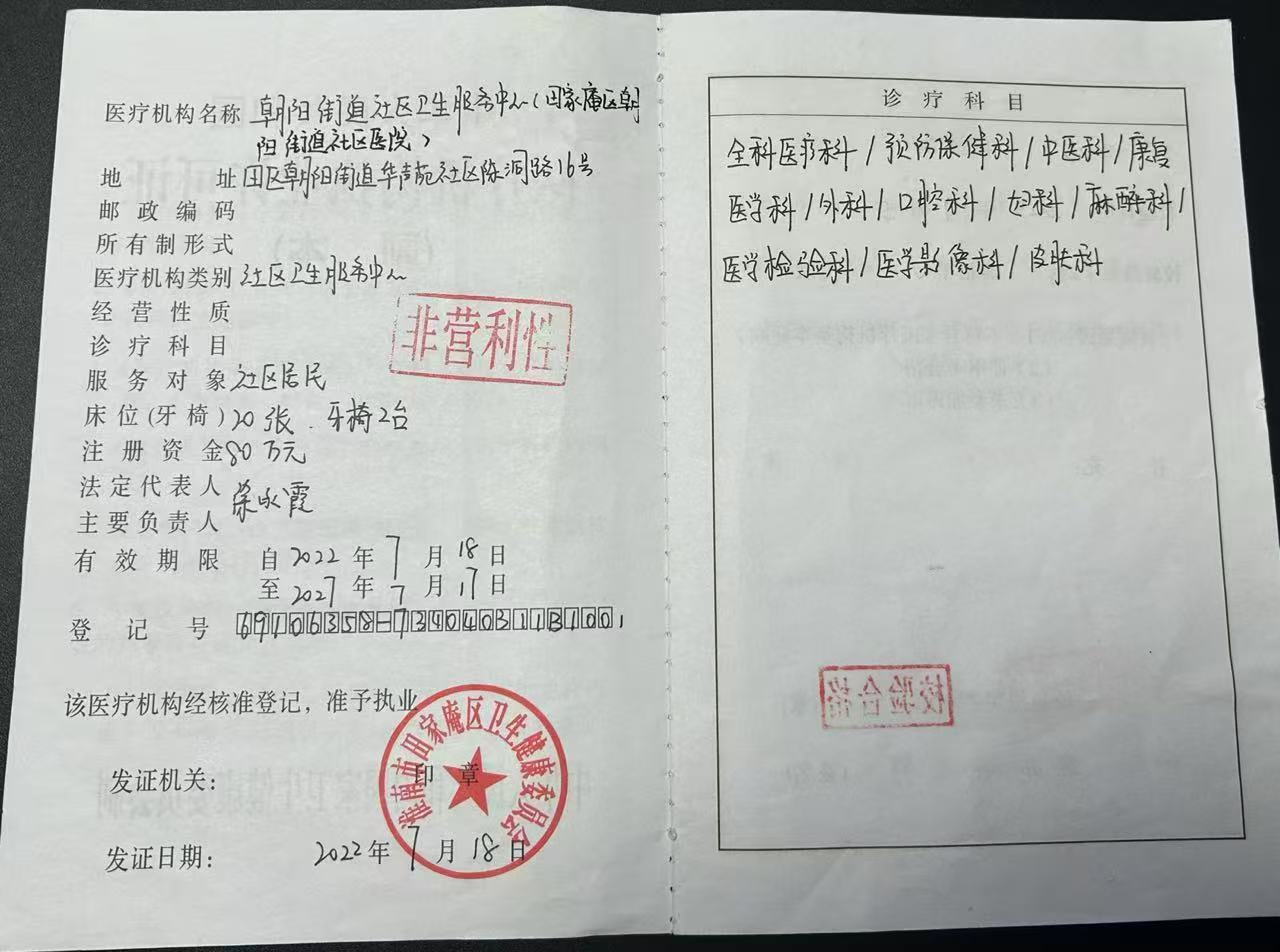 医疗机构名称 朝阳街道社区卫生服务中心(田家庵区朝
阳街道社区医院)
地址 田区朝阳街道华声苑社区陈洞路16号
邮政编码
所有制形式
医疗机构类别 社区卫生服务中心
经营性质
非营利性
诊疗科目
服务对象 社区居民
床位(牙椅) 20张.牙椅2台
注册资金 80万元
法定代表人
主要负责人 荣永霞
有效期限 自2022年7月18日
至2027年7月17日
登记号 69106358-734040311B1001
该医疗机构经核准登记,准予执业
淮南市田家庵区卫生健康委员会
发证机关: 印章
发证日期: 2022年7月18日
诊疗科目
全科医疗科/预防保健科/中医科/康复
医学科/外科/口腔科/妇科/麻醉科/
医学检验科/医学影像科/皮肤科
校验合格